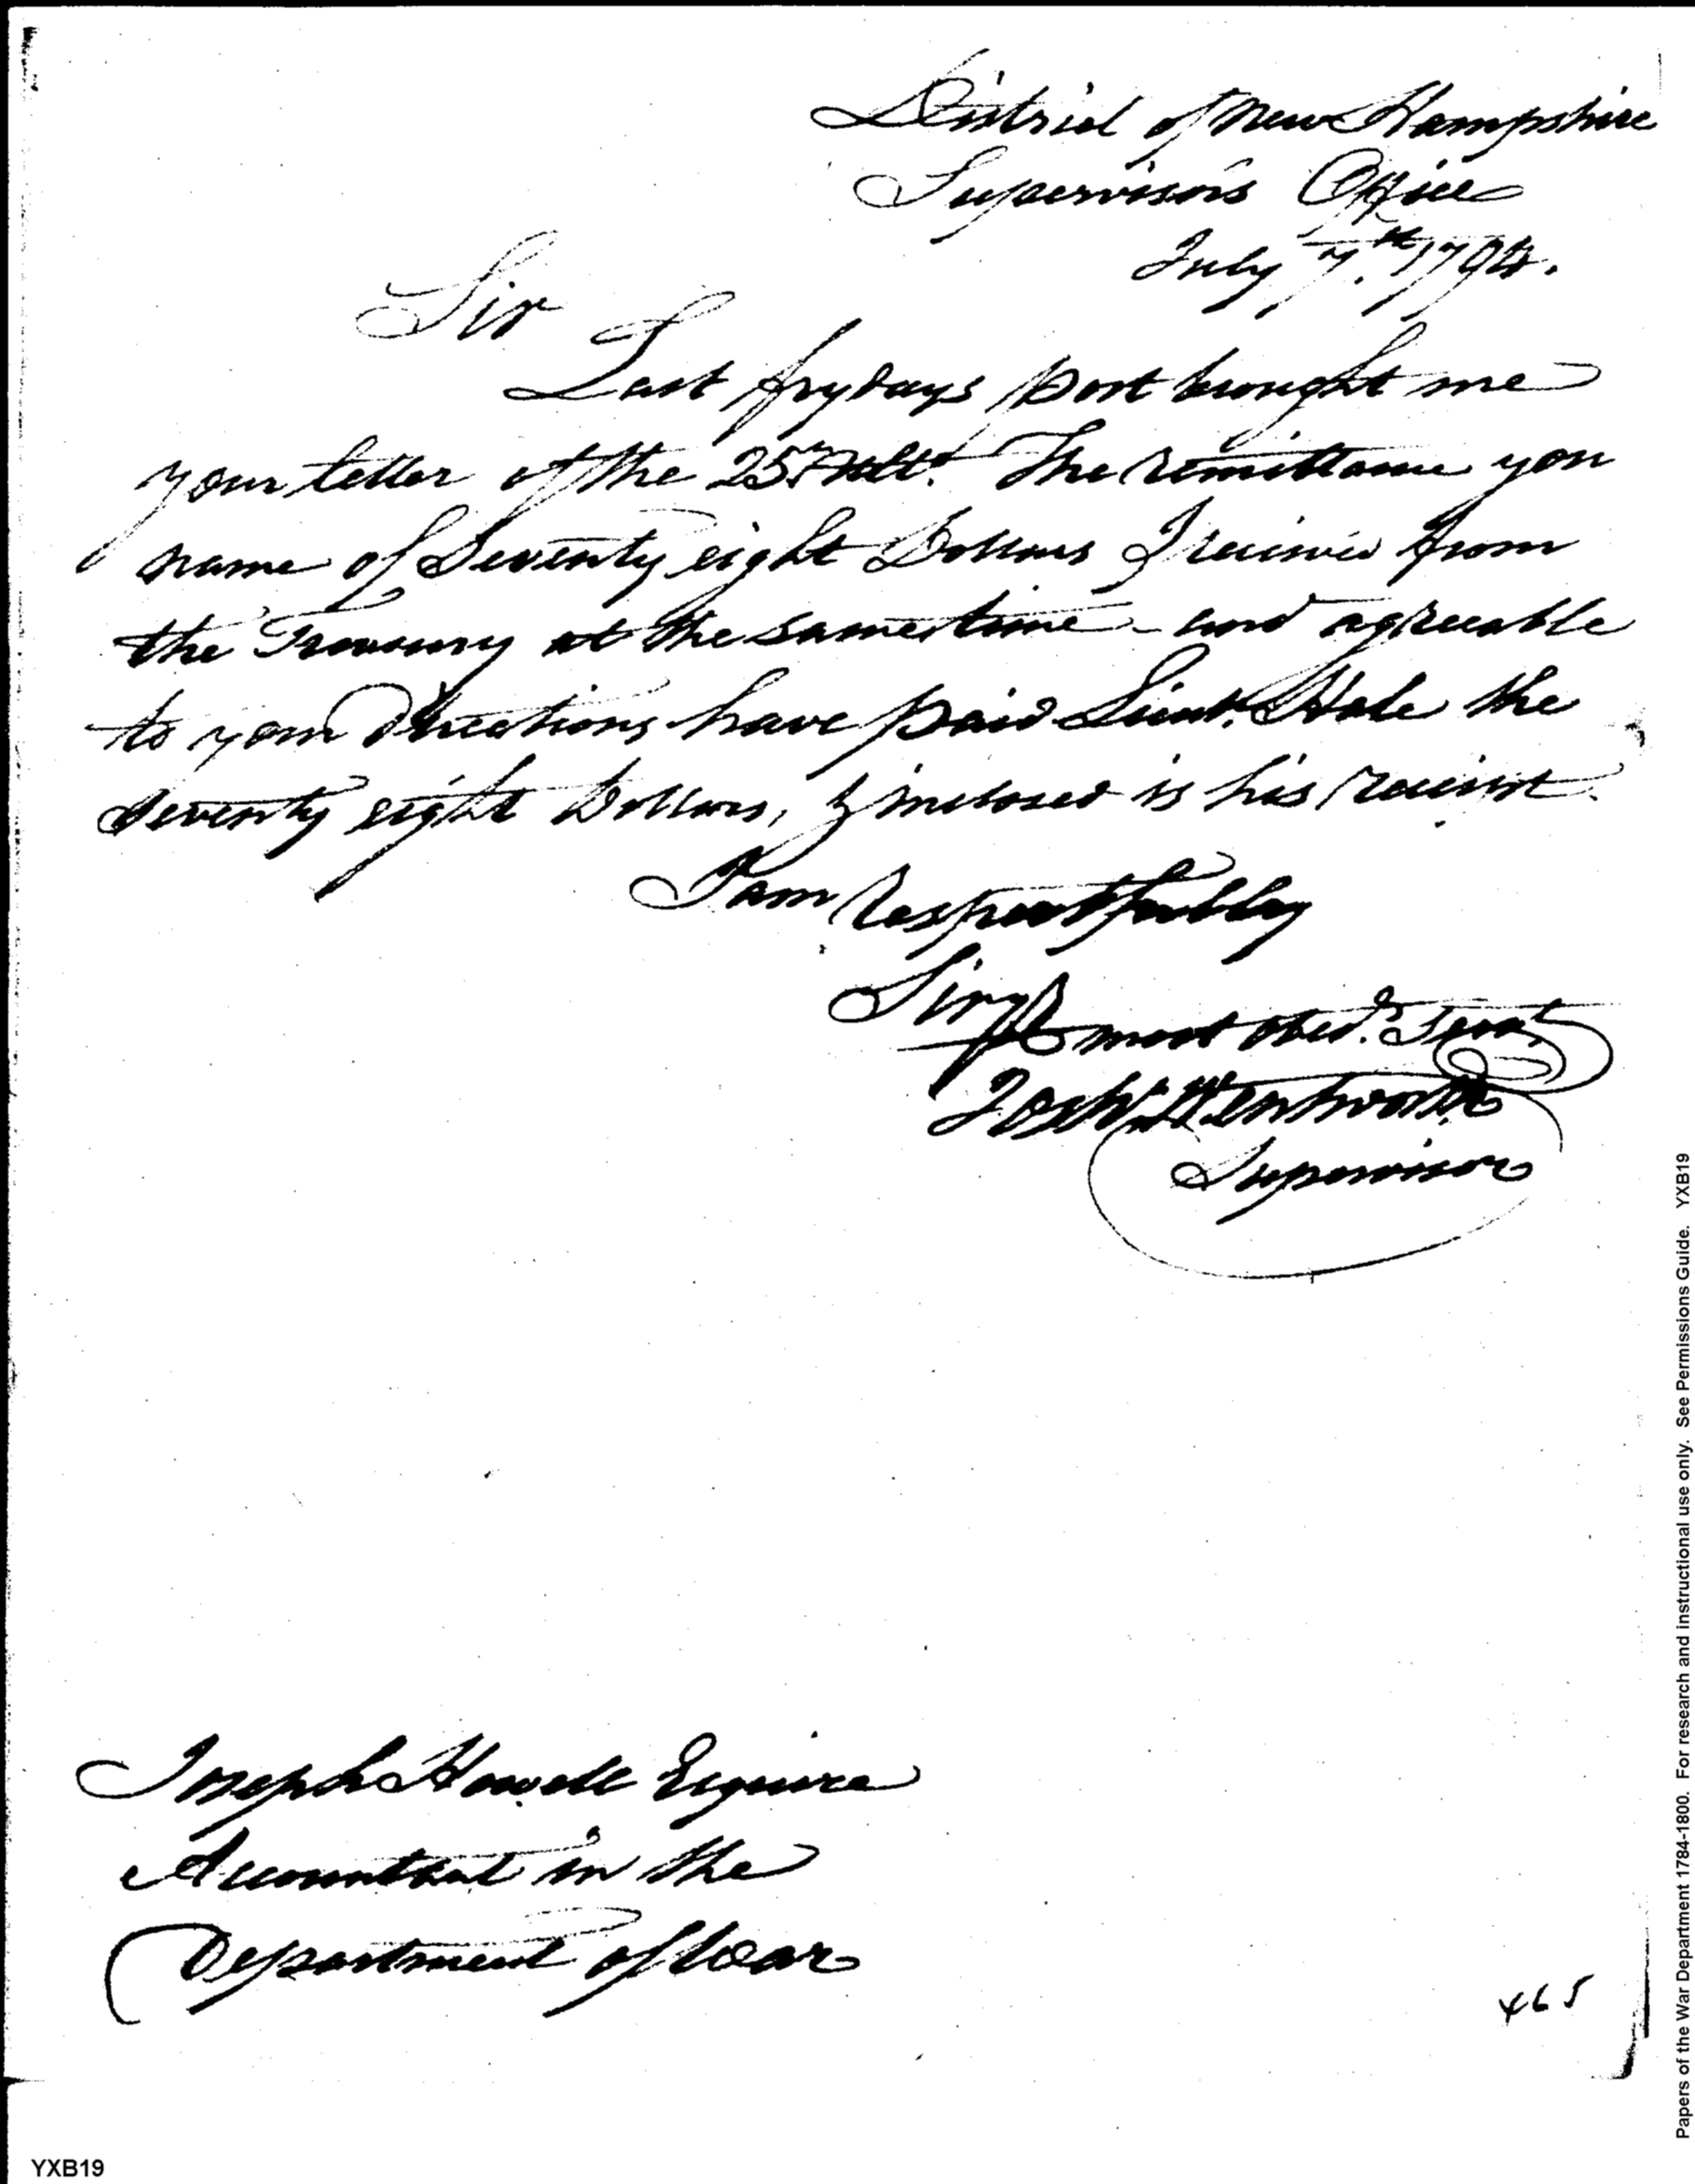 District of New Hampshire
Supervisors Office
July 7.th 1794.
Sir
Last frydays post brought me
your letter of the 25th Ult.o The remittance you
name of Seventy eight Dollars I received from
the Treasury at the same time - and agreeable
to your Directions have paid Lieut. Hale the
Seventy eight Dollars, & inclosed is his receipt.
I am Respectfully
Sir yr
most obed.t Servt
Josh: Wentworth
Supervisor
Joseph Howell Esquire
Accountant in the
Department of War
465
YXB19
Papers of the War Department 1784-1800. For research and instructional use only. See Permissions Guide. YXB19